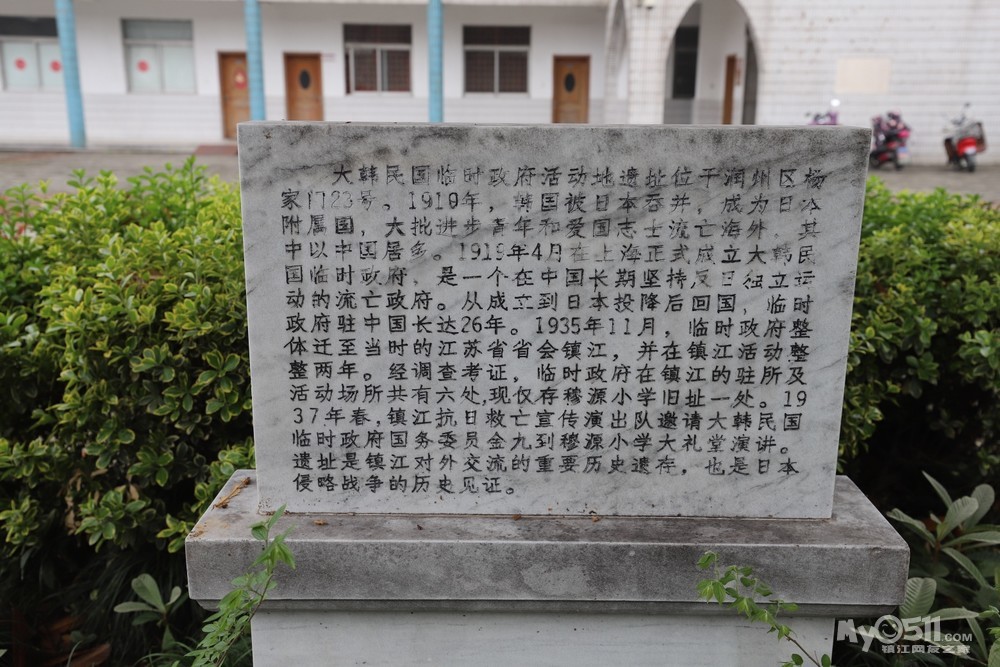 大韩民国临时政府活动地遗址位于润州区杨
家门23号。1910年，韩国被日本吞并，成为日本
附属国，大批进步青年和爱国志士流亡海外，其
中以中国居多。1919年4月在上海正式成立大韩民
国临时政府，是一个在中国长期坚持反日独立运
动的流亡政府。从成立到日本投降后回国，临时
政府驻中国长达26年。1935年11月，临时政府整
体迁至当时的江苏省省会镇江，并在镇江活动整
整两年。经调查考证，临时政府在镇江的驻所及
活动场所共有六处，现仅存穆源小学旧址一处。19
37年春，镇江抗日救亡宣传演出队邀请大韩民国
临时政府国务委员金九到穆源小学大礼堂演讲。
遗址是镇江对外交流的重要历史遗存，也是日本
侵略战争的历史见证。
My0511.COM
镇江网友之家